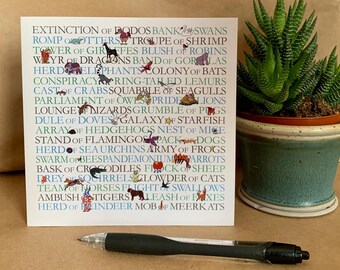 EXTINCTION OF DODOS BANK OF SWANS
ROMP OF OTTERS TROUPE OF SHRIMP
TOWER OF GIRAFFES BLUSH OF ROBINS
OF DRAGONS BAND OF GORILLAS
HERD OF COLONY OF BATS
CONSPIRACY OF RING-TAILED LEMURS
CAST OF CRABS SQUABBLE OF SEAGULLS
PARLIAMENT OF OWLS PRIDE OF LIONS
LOUNGE OF LIZARDS GRUMBLE OF PUGS
DULE OF DOVES GALAXY OF STARFISH
ARRAY OF HEDGEHOGS NEST OF MICE
STAND OF FLAMINGOS OF DOGS
HERD OF SEA URCHINS ARMY OF FROGS
SWARM OF PANDEMONIUM OF PARROTS
BASK OF CROCODILES FLOCK OF SHEEP
OF SQUIRRELS GLOWDER OF CATS
TEAM OF HORSES FLIGHT OF SWALLOWS
AMBUSH OF TIGERS LEASH OF FOXES
HERD OF REINDEER MOB OF MEERKATS